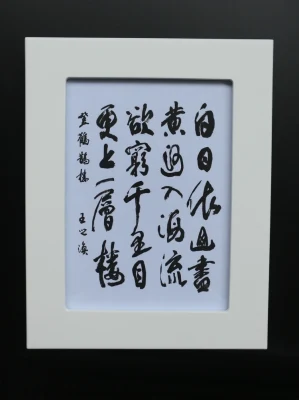 白日依山盡
黃河入海流
欲窮千里目
更上一層樓
登鸛鵲樓
王之渙